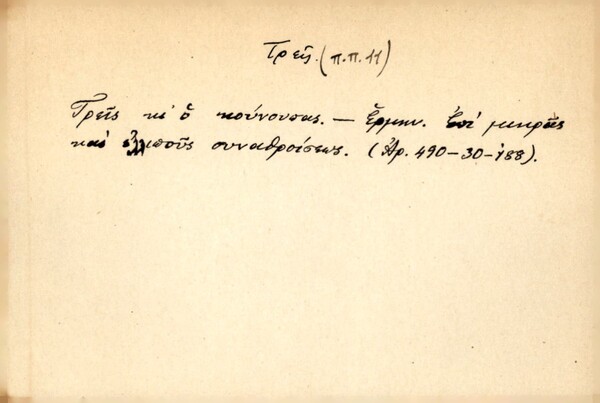 Τρεῖς (π.π. 11)
Τρεῖς κι' ὁ κούνουπας. — Ἑρμην. Ἐπί μικρᾶς
καί ἐλλιποῦς συναθροίσεως. (Ἀρ. 490-30-188).